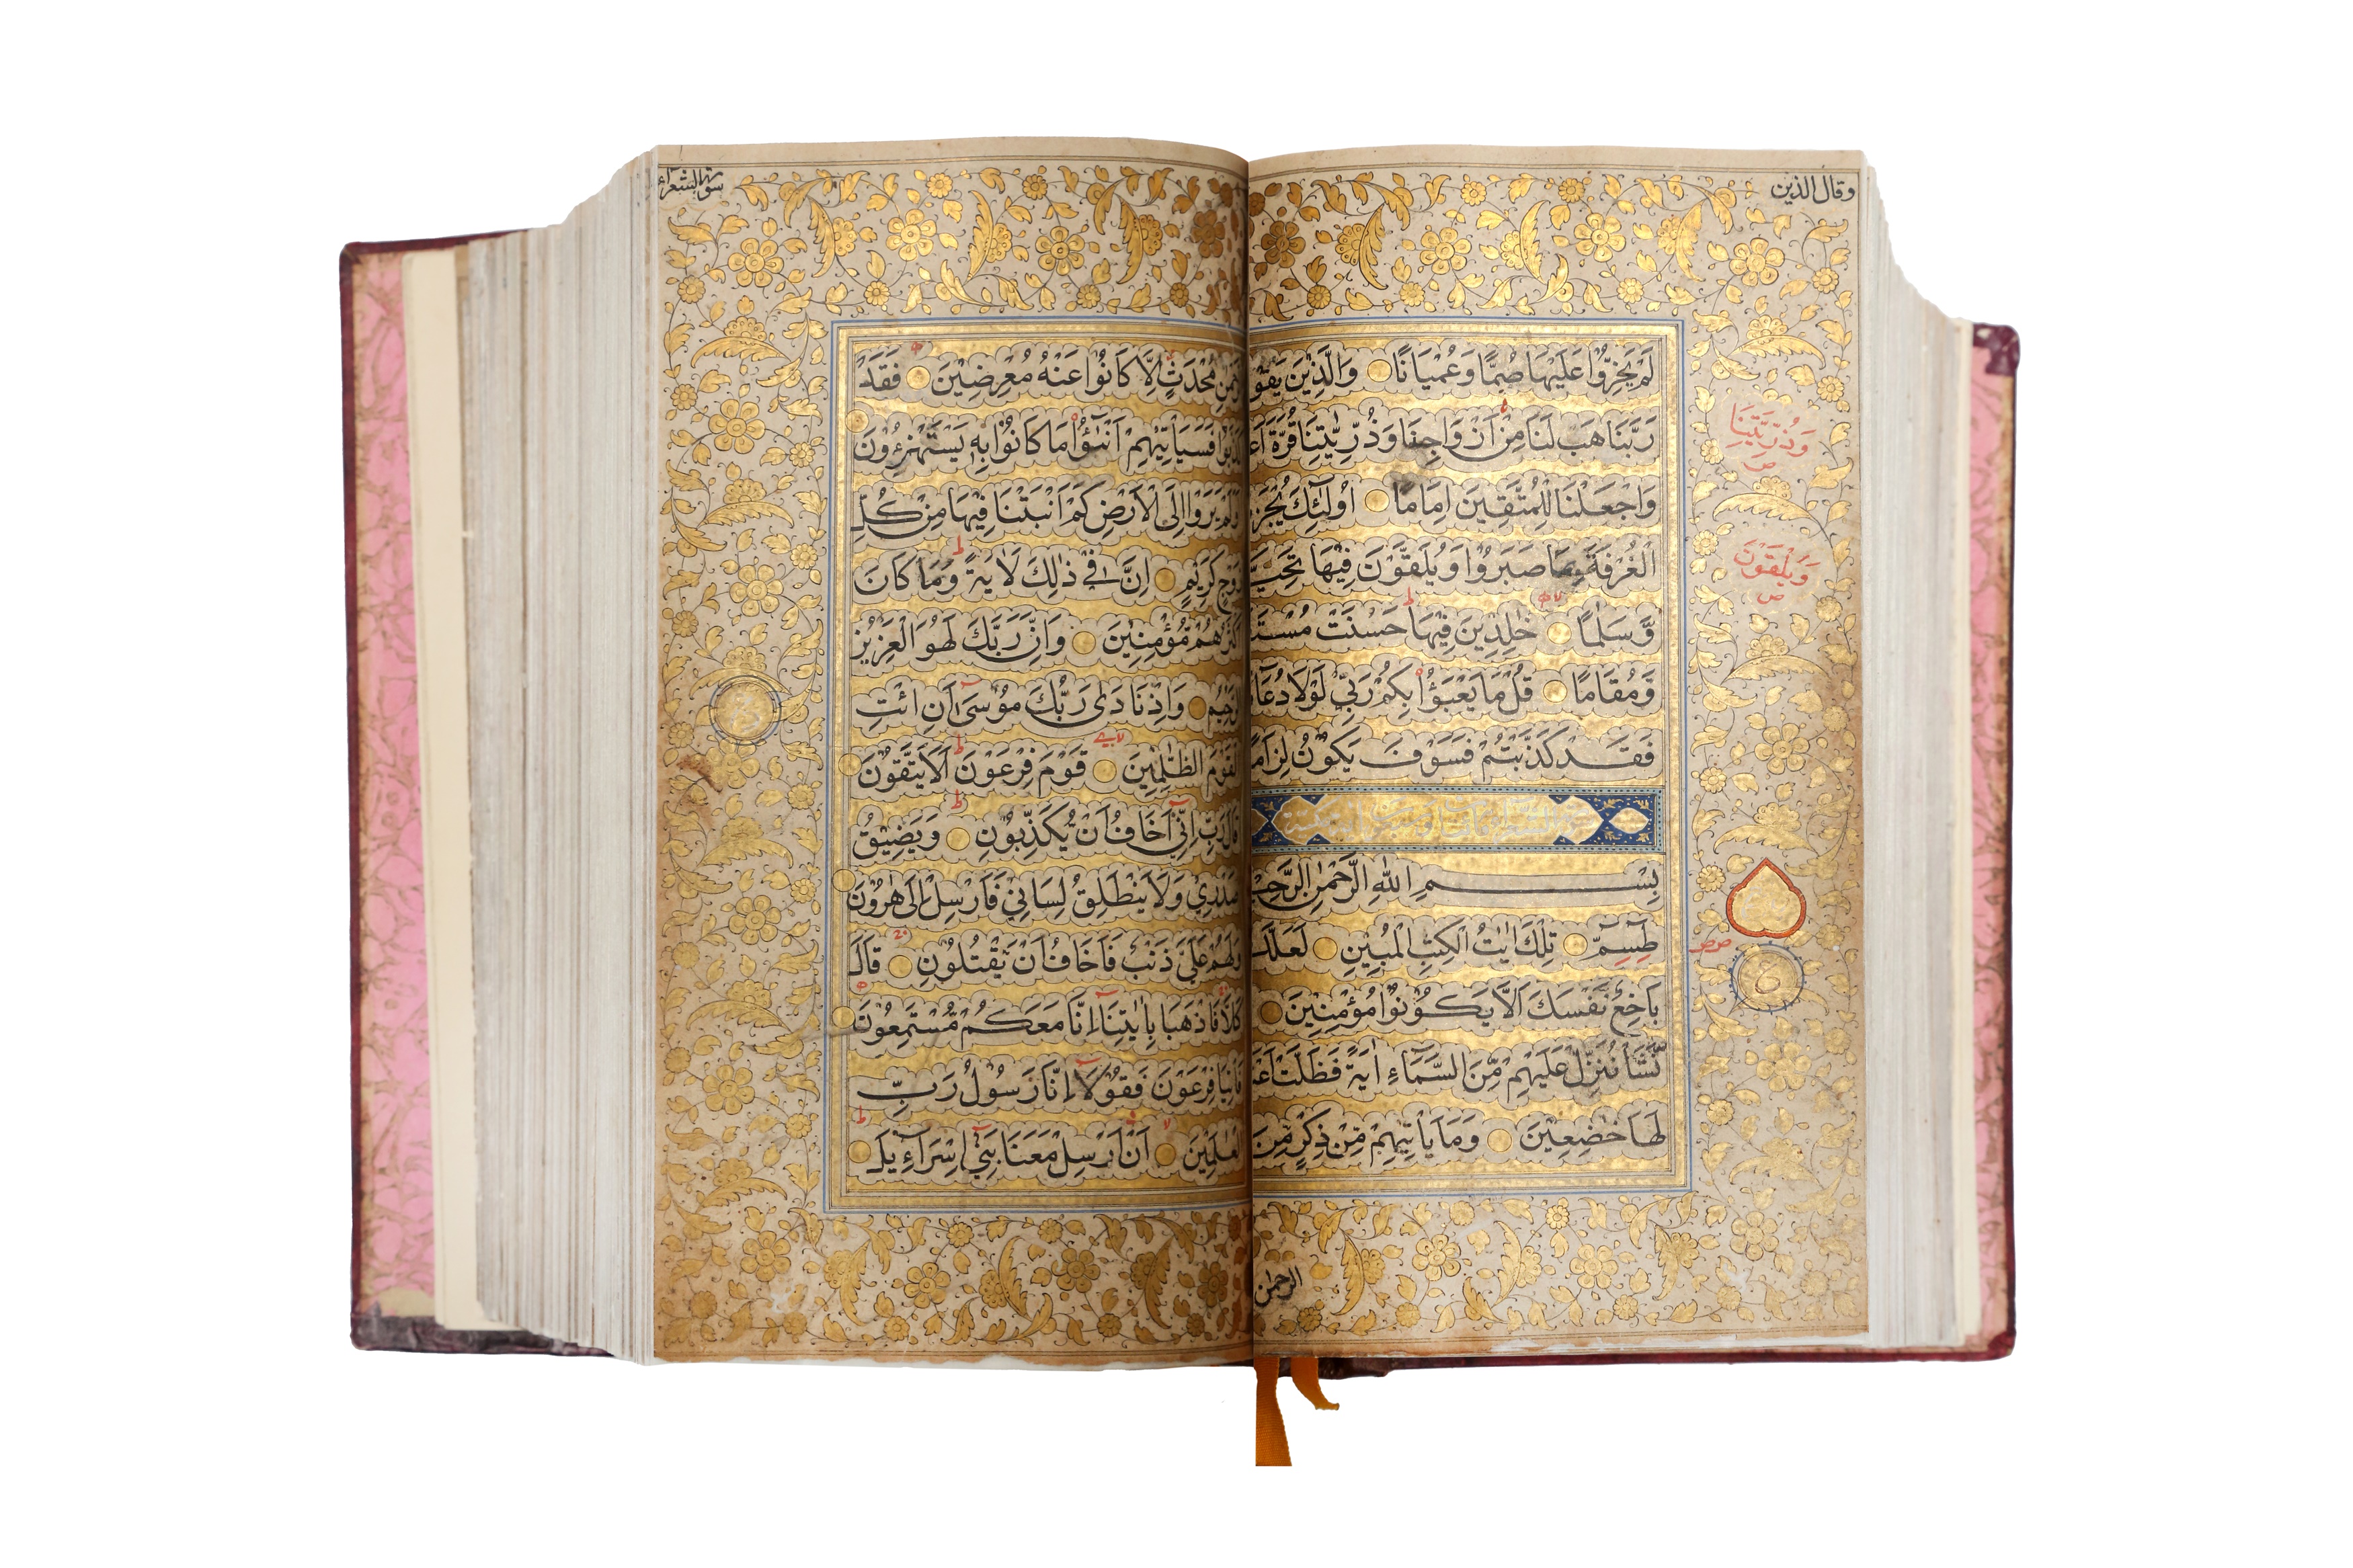 وقال الذين
لَمْ يَخِرُّوْا عَلَيْهَا صُمًّا وَّعُمْيَانًا وَالَّذِيْنَ يَقُو
رَبَّنَا هَبْ لَنَا مِنْ اَزْوَاجِنَا وَذُرِّيّٰتِنَا قُرَّةَ
وَاجْعَلْنَا لِلْمُتَّقِيْنَ اِمَامًا اُولٰٓئِكَ يُجْزَ
الْغُرْفَةَ بِمَا صَبَرُوْا وَيُلَقَّوْنَ فِيْهَا تَحِيَّ
وَّسَلٰمًا خٰلِدِيْنَ فِيْهَا حَسُنَتْ مُسْتَ
وَّمُقَامًا قُلْ مَا يَعْبَؤُا بِكُمْ رَبِّيْ لَوْلَا دُعَا
فَقَدْ كَذَّبْتُمْ فَسَوْفَ يَكُوْنُ لِزَامًا
بِسْمِ اللهِ الرَّحْمٰنِ الرَّحِ
طٰسٓمّٓ تِلْكَ اٰيٰتُ الْكِتٰبِ الْمُبِيْنِ لَعَلَّكَ
بَاخِعٌ نَّفْسَكَ اَلَّا يَكُوْنُوْا مُؤْمِنِيْنَ
نَّشَأْ نُنَزِّلْ عَلَيْهِمْ مِّنَ السَّمَآءِ اٰيَةً فَظَلَّتْ
لَهَا خٰضِعِيْنَ وَمَا يَاْتِيْهِمْ مِّنْ ذِكْرٍ مِّنَ
وَذُرِّيَّتِنَا
ص
وَيَلْقَوْنَ
ص
ع
الرحمن
سورة الشعراء
مِنْ مُحْدَثٍ اِلَّا كَانُوْا عَنْهُ مُعْرِضِيْنَ فَقَدْ
فَسَيَاْتِيْهِمْ اَنْۢبٰٓؤُا مَا كَانُوْا بِهٖ يَسْتَهْزِءُوْنَ
اَوَلَمْ يَرَوْا اِلَى الْاَرْضِ كَمْ اَنْۢبَتْنَا فِيْهَا مِنْ كُلِّ
زَوْجٍ كَرِيْمٍ اِنَّ فِيْ ذٰلِكَ لَاٰيَةً وَّمَا كَانَ
اَكْثَرُهُمْ مُّؤْمِنِيْنَ وَاِنَّ رَبَّكَ لَهُوَ الْعَزِيْزُ
الرَّحِيْمُ وَاِذْ نَادٰى رَبُّكَ مُوْسٰٓى اَنِ ائْتِ
الْقَوْمَ الظّٰلِمِيْنَ قَوْمَ فِرْعَوْنَ اَلَا يَتَّقُوْنَ
قَالَ رَبِّ اِنِّيْٓ اَخَافُ اَنْ يُّكَذِّبُوْنِ وَيَضِيْقُ
صَدْرِيْ وَلَا يَنْطَلِقُ لِسَانِيْ فَاَرْسِلْ اِلٰى هٰرُوْنَ
وَلَهُمْ عَلَيَّ ذَنْۢبٌ فَاَخَافُ اَنْ يَّقْتُلُوْنِ قَالَ
كَلَّا فَاذْهَبَا بِاٰيٰتِنَآ اِنَّا مَعَكُمْ مُّسْتَمِعُوْنَ
فَاْتِيَا فِرْعَوْنَ فَقُوْلَآ اِنَّا رَسُوْلُ رَبِّ
الْعٰلَمِيْنَ اَنْ اَرْسِلْ مَعَنَا بَنِيْٓ اِسْرَآءِيْلَ